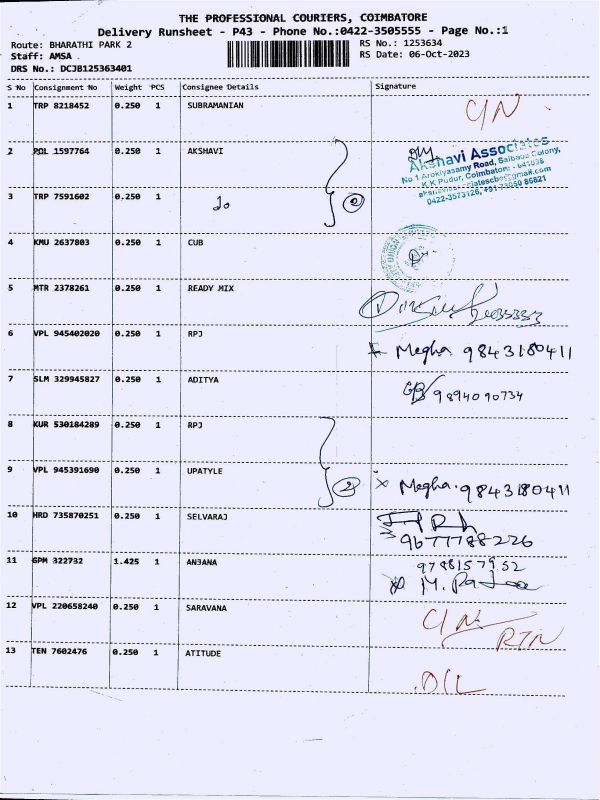 THE PROFESSIONAL COURIERS, COIMBATORE
Delivery Runsheet - P43 - Phone No.:0422-3505555 - Page No.:1
Route: BHARATHI PARK 2 RS No.: 1253634
Staff: AMSA RS Date: 06-Oct-2023
DRS No.: DCJB125363401
S No Consignment No Weight PCS Consignee Details Signature
1 TRP 8218452 0.250 1 SUBRAMANIAN C/N
2 POL 1597764 0.250 1 AKSHAVI
Akshavi Associates
No 1 Arokiyasamy Road, Saibaba Colony,
K.K Pudur, Coimbatore - 641038
0422-3573126, +91 73050 86821
3 TRP 7591602 0.250 1 do 2
4 KMU 2637803 0.250 1 CUB
5 MTR 2378261 0.250 1 READY MIX
6 VPL 945402020 0.250 1 RPJ Megha 9843180411
7 SLM 329945827 0.250 1 ADITYA 9894090734
8 KUR 530184289 0.250 1 RPJ
9 VPL 945391690 0.250 1 UPATYLE 2 x Megha. 9843180411
10 HRD 735870251 0.250 1 SELVARAJ
9677788226
11 GPM 322732 1.425 1 ANJANA 9788157952
12 VPL 220658240 0.250 1 SARAVANA C/N
RTN
13 TEN 7602476 0.250 1 ATITUDE D/L